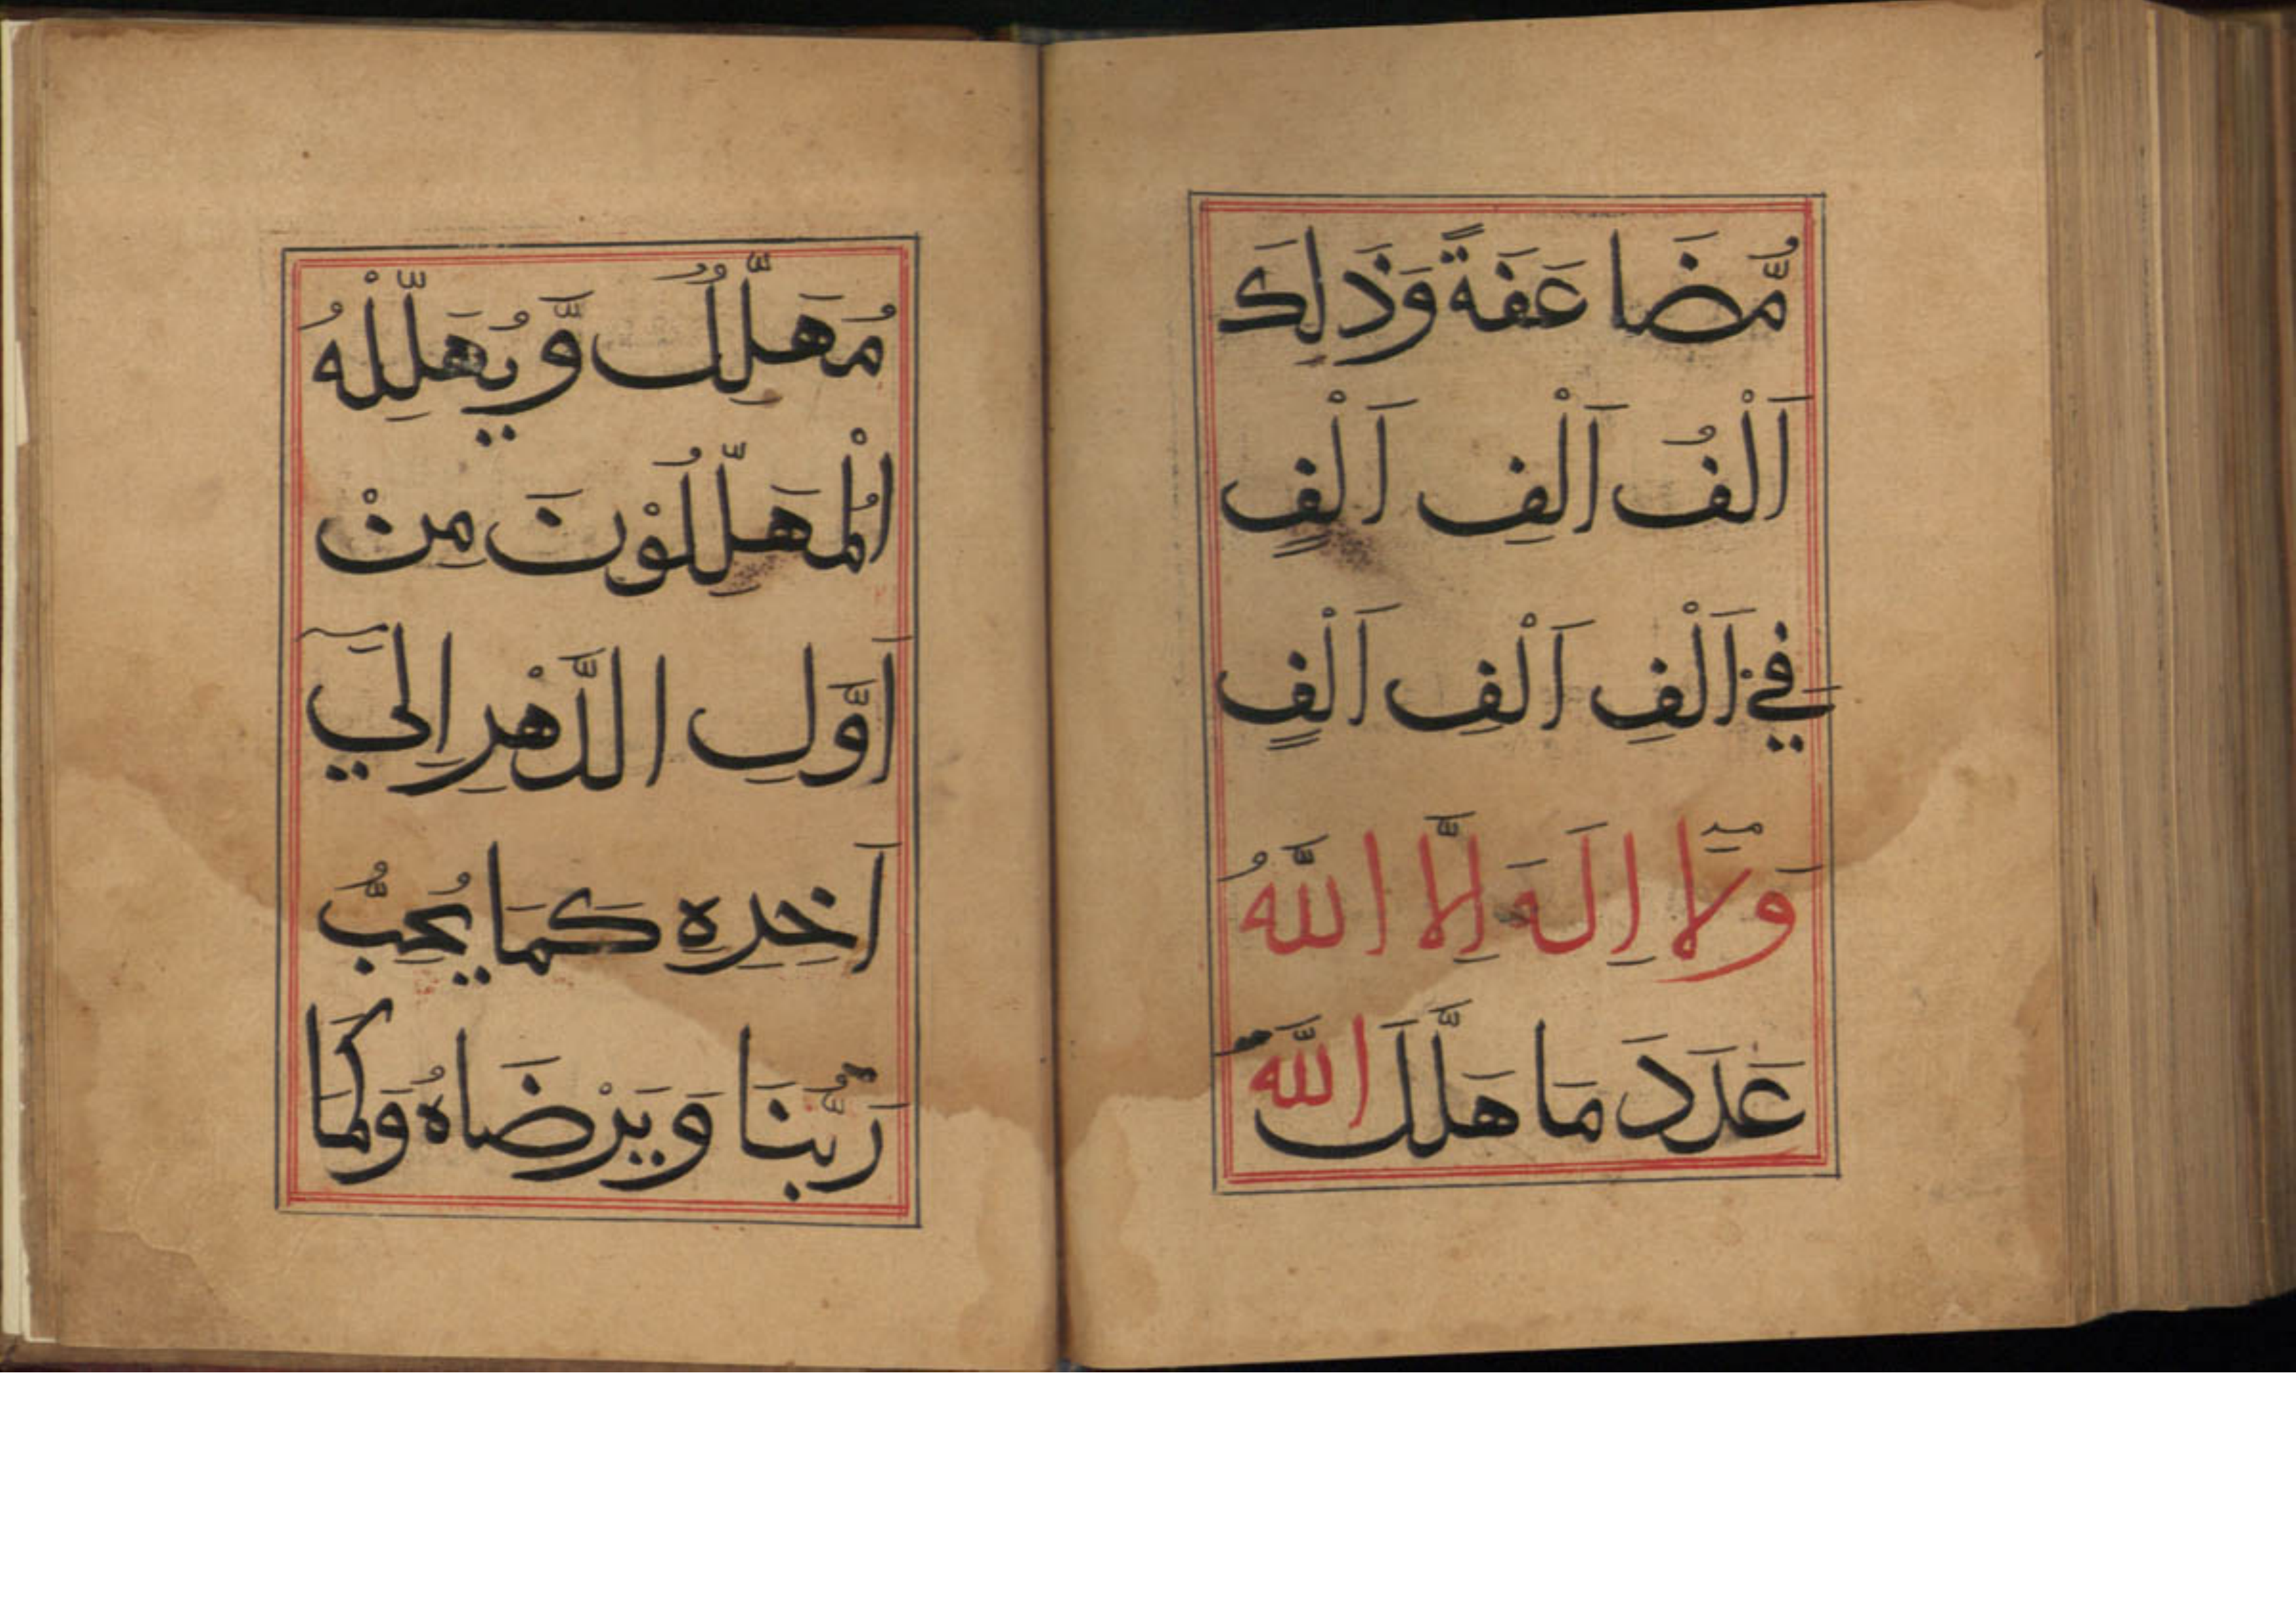 مُّضَا عَفَةً وَذَلِكَ
اَلْفُ اَلْفِ اَلْفٍ
فِي اَلْفِ اَلْفِ اَلْفٍ
وَلَا اِلَهَ اِلَّا اللَّهُ
عَدَدَ مَا هَلَّلَ اللَّه
مُهَلِّلُ وَّيُهَلِّلْهُ
الْمُهَلِّلُوْنَ مِنْ
اَوَّلِ الدَّهْرِ اِلَي
آخِرِهِ كَمَا يُحِبُّ
رَبُّنَا وَيَرْضَاهُ وَكَمَا